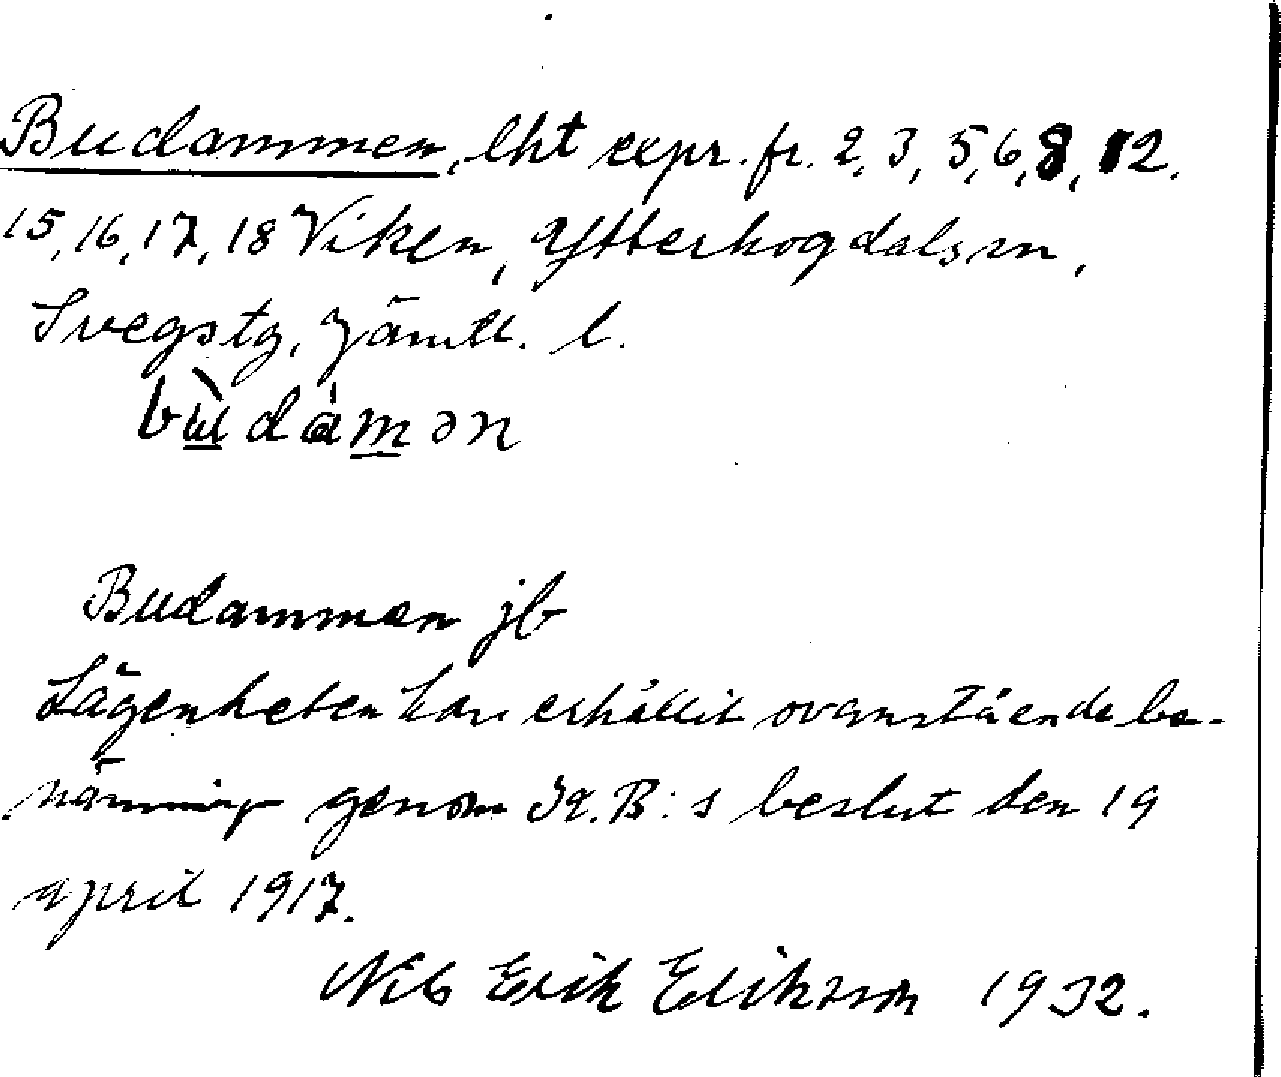 Budammen, lht expr. fr. 2, 3, 5, 6, 8, 12,
15, 16, 17, 18 Viken, Ytterhogdals sn,
Svegs tg, Jämtl. l.
bùdámən
Budammen jb
Lägenheten har erhållit ovanstående be-
nämning genom K.B:s beslut den 19
april 1917.
Nils Erik Eriksson 1932.